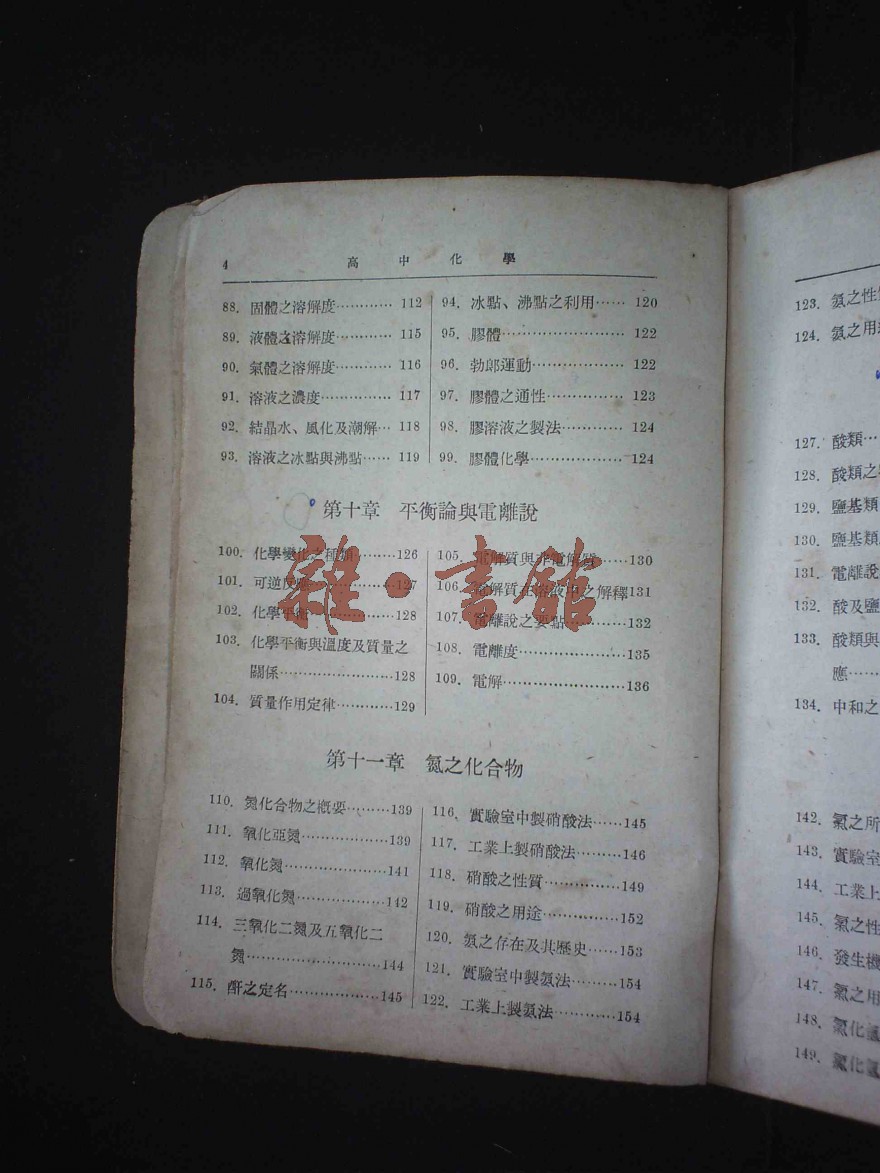 4 高中化學
88. 固體之溶解度………… 112
89. 液體之溶解度………… 115
90. 氣體之溶解度………… 116
91. 溶液之濃度…………… 117
92. 結晶水、風化及潮解… 118
93. 溶液之冰點與沸點…… 119
94. 冰點、沸點之利用…… 120
95. 膠體………………… 122
96. 勃郎運動……………… 122
97. 膠體之通性…………… 123
98. 膠溶液之製法………… 124
99. 膠體化學……………… 124
第十章 平衡論與電離說
100. 化學變化之種類………126
101. 可逆反應……………127
102. 化學平衡……………128
103. 化學平衡與溫度及質量之
關係…………………128
104. 質量作用定律…………129
105. 電解質與非電解質……130
106. 電解質在溶液中之解釋131
107. 電離說之要點…………132
108. 電離度…………………135
109. 電解……………………136
雜·書館
第十一章 氮之化合物
110. 氮化合物之概要………139
111. 氧化亞氮………………139
112. 氧化氮…………………141
113. 過氧化氮………………142
114. 三氧化二氮及五氧化二
氮………………………144
115. 酐之定名………………145
116. 實驗室中製硝酸法……145
117. 工業上製硝酸法………146
118. 硝酸之性質……………149
119. 硝酸之用途……………152
120. 氨之存在及其歷史……153
121. 實驗室中製氨法………154
122. 工業上製氨法…………154
123. 氨之性
124. 氨之用
127. 酸類…
128. 酸類之
129. 鹽基類
130. 鹽基類
131. 電離說
132. 酸及鹽
133. 酸類與
應……
134. 中和之
142. 氯之所
143. 實驗室
144. 工業上
145. 氯之性
146. 發生機
147. 氯之用
148. 氯化
149. 氯化